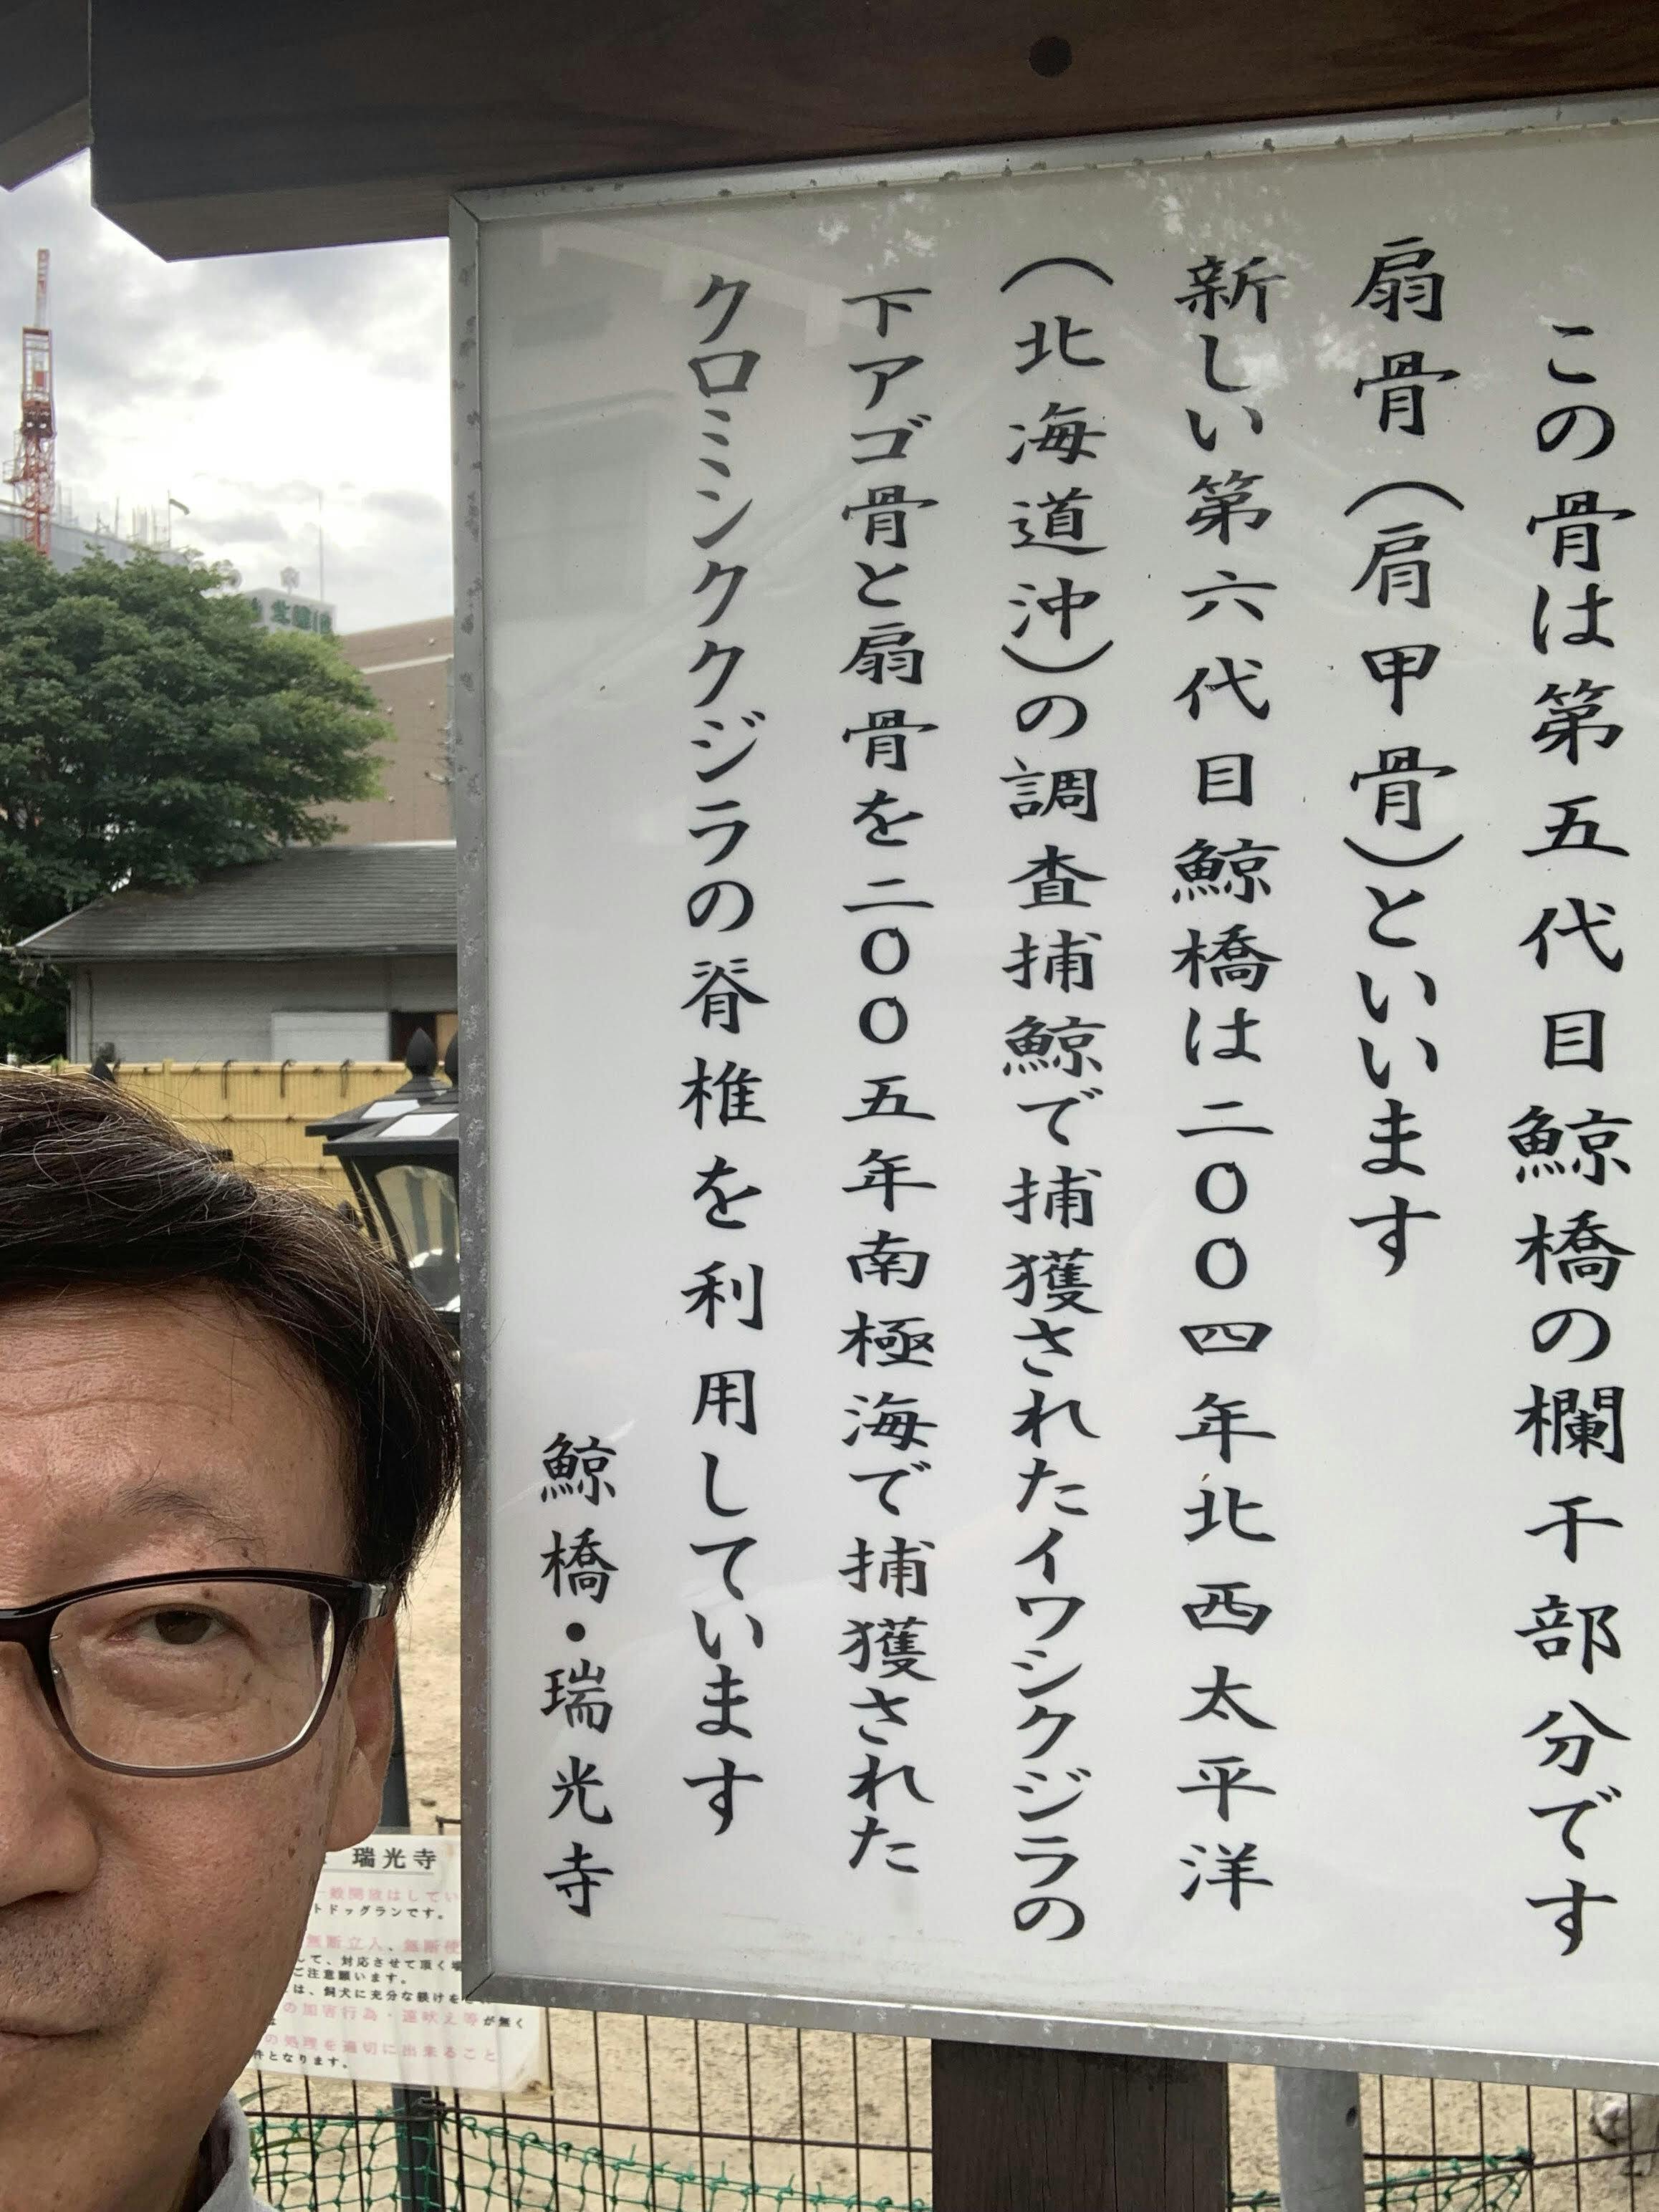 この骨は第五代目鯨橋の欄干部分です
扇骨(肩甲骨)といいます
新しい第六代目鯨橋は二〇〇四年北西太平洋
(北海道沖)の調査捕鯨で捕獲されたイワシクジラの
下アゴ骨と扇骨を二〇〇五年南極海で捕獲された
クロミンククジラの脊椎を利用しています
鯨橋・瑞光寺
瑞光寺
一般開放はしてい
トドッグランです。
無断立入、無断使
して、対応させて頂く場
ご注意願います。
は、飼犬に充分な躾けを
の加害行為・遠吠え等が無く
の処理を適切に出来ること
件となります。